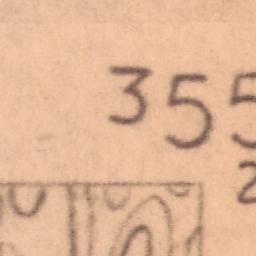 355
2